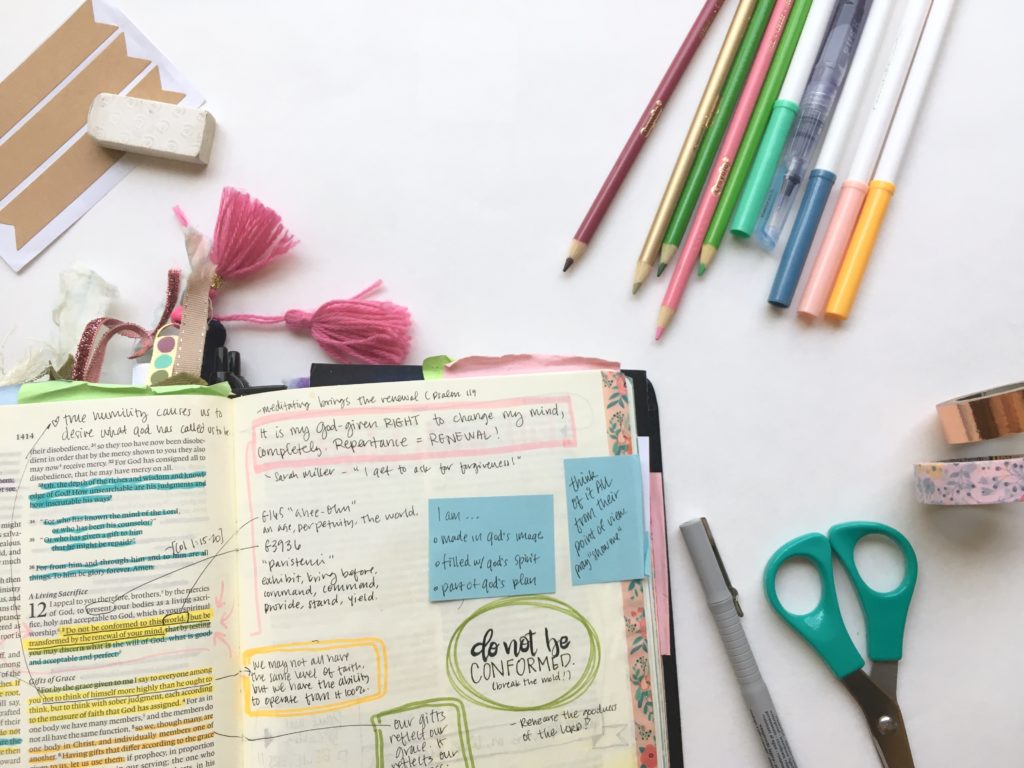 true humility causes us to
desire what God has called us to be
1414
their disobedience, so they too have now been disobe-
dient in order that by the mercy shown to you they also
may now receive mercy. For God has consigned all to
disobedience, that he may have mercy on all.
Oh, the depth of the riches and wisdom and knowl-
edge of God! How unsearchable are his judgments and
how inscrutable his ways!
"For who has known the mind of the Lord,
or who has been his counselor?"
"Or who has given a gift to him
that he might be repaid?"
For from him and through him and to him are all
things. To him be glory forever. Amen.
A Living Sacrifice
12 I appeal to you therefore, brothers, by the mercies
of God, to present your bodies as a living sacri-
fice, holy and acceptable to God, which is your spiritual
worship. Do not be conformed to this world, but be
transformed by the renewal of your mind, that by testing
you may discern what is the will of God, what is good
and acceptable and perfect.
Gifts of Grace
For by the grace given to me I say to everyone among
you not to think of himself more highly than he ought to
think, but to think with sober judgment, each according
to the measure of faith that God has assigned. For as in
one body we have many members, and the members do
not all have the same function, so we, though many, are
one body in Christ, and individually members one of
another. Having gifts that differ according to the grace
given to us, let us use them: if prophecy, in proportion
- meditating brings the renewal (Psalm 119
It is my God-given RIGHT to change my mind,
completely. Repentance = RENEWAL!
- Sarah Miller - "I get to ask for forgiveness!"
G165 "ahee-ohn"
an age, perpetuity, the world.
G3936
"paristemi"
exhibit, bring before,
command, commend,
provide, stand, yield.
I am ...
made in God's image
filled w/ God's spirit
part of God's plan
think
of it all
from their
point of view
pray "show me"
do not be
CONFORMED.
(break the mold!)
we may not all have
the same level of faith.
but we have the ability
to operate from it 100%.
our gifts
reflect our
grace. it
reflects our
- Rehearse the goodness
of the Lord!